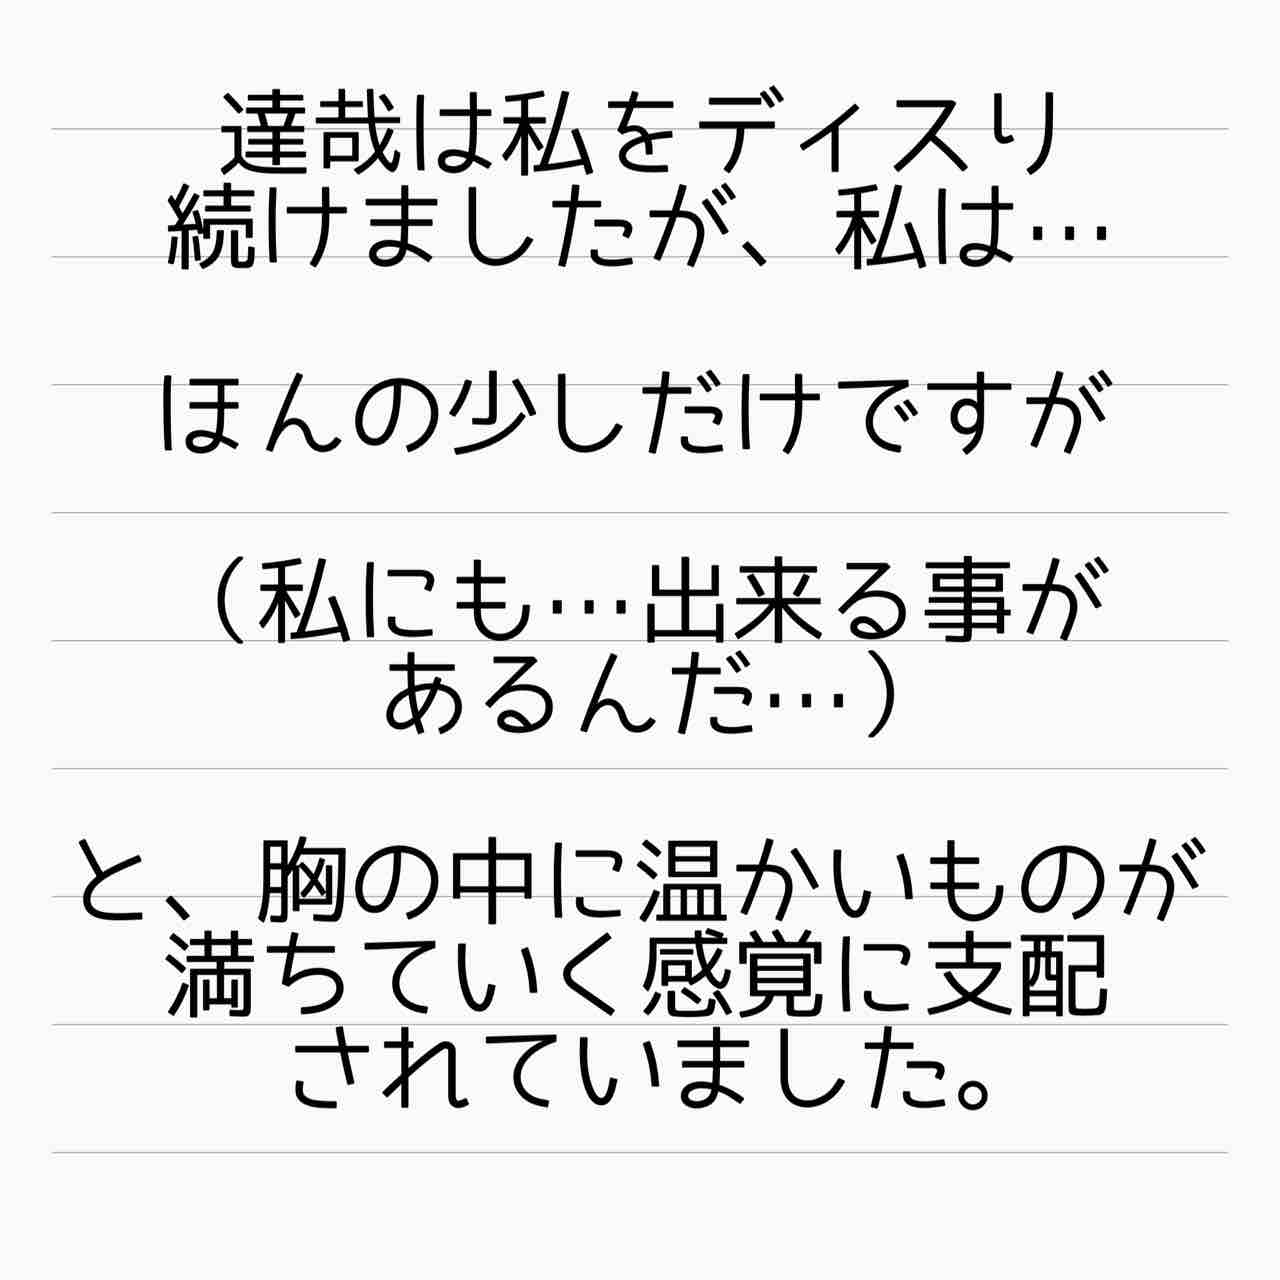 達哉は私をディスり
続けましたが、私は…
ほんの少しだけですが
（私にも…出来る事が
あるんだ…）
と、胸の中に温かいものが
満ちていく感覚に支配
されていました。